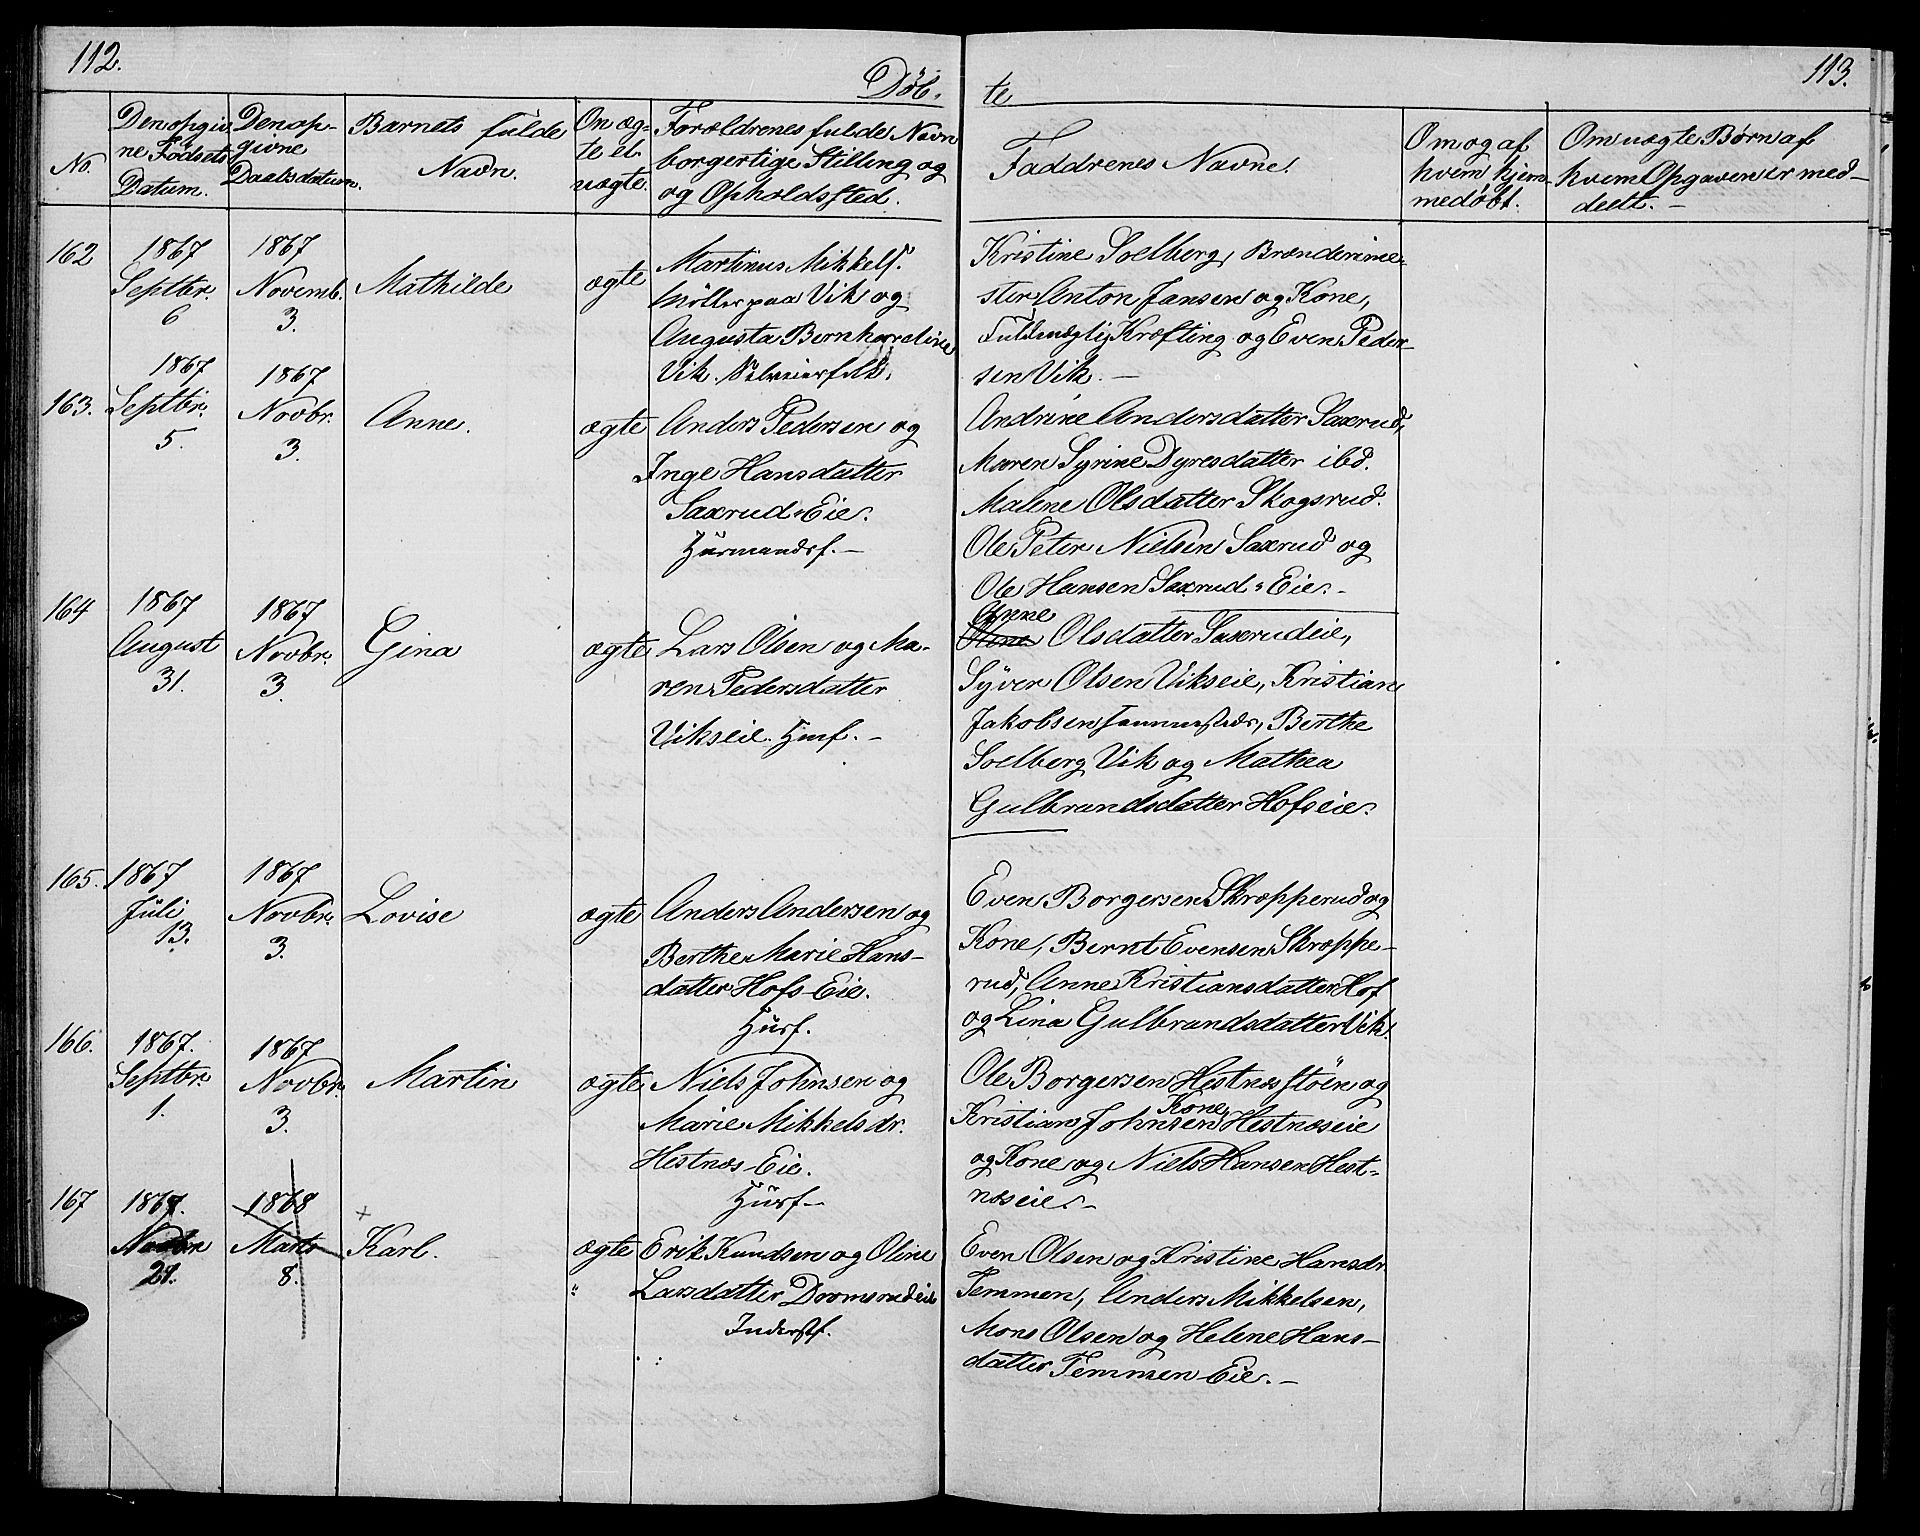 112.
Døb-
No.
Den opgiv
ne Fødsels
Datum.
Den op-
givne
Daabsdatum.
Barnets fulde
Navn.
Om æg-
te el.
uægte.
Forældrenes fulde Navn
borgerlige Stilling og
og Opholdssted.
162
1867
Septbr.
6
1867
Novemb.
3.
Mathilde
ægte
Martinus Mikkels.
Møller paa Vik og
Augusta Bernhardine
Vik.
163.
1867
Septbr.
5.
1867
Novbr.
3.
Anne.
ægte
Anders Pedersen og
Inge Hansdatter
Saxrud-Eie.
Husmandsf. -
164
1867
August
31.
1867
Novbr.
3.
Gina
ægte
Lars Olsen og Ma-
ren Pedersdatter
Vikseie. Husf. -
165.
1867
Juli
13.
1867
Novbr.
3.
Lovise
ægte
Anders Andersen og
Berthe Marie Hans-
datter Hofs-Eie.
Husf.
166.
1867.
Septbr.
1.
1867
Novbr.
3.
Martin
ægte
Niels Johnsen og
Marie Mikkelsdr.
Hestnæs-Eie.
Husf -
167
1867.
Novbr
1868
Marts
8.
+
Karl.
ægte
Erik Knudsen og Oline
Larsdatter
Inderstf.
113.
te
Faddrenes Navne.
Om og af
hvem hjem-
medøbt.
Om uægte Børn af
hvem Opgaven er med-
deelt. -
Kristine Soelberg, Brænderime-
ster Anton Jansen og Kone,
Fuldmægtig Kræfting og Even Peder-
sen Vik. -
Andrine Andersdatter Saxrud,
Maren Syrine Dyresdatter ibd.
Malene Olsdatter Skogsrud.
Ole Peter Nielsen Saxrud og
Ole Hansen Saxrud-Eie. -
Anne
Oline Olsdatter Saxrudeie,
Syver Olsen Vikseie, Kristian
Jakobsen Berthe
Soelberg Vik og Mathea
Gulbrandsdatter Hofseie.
Even Borgersen Skrapperud og
Kone, Bernt Evensen Skrappe-
rud, Anne Kristiansdatter Hof
og Lina Gulbrandsdatter Vik.
Ole Borgersen Hestnæsstøen og
Kone,
Kristian Johnsen Hestnæseie
og Kone og Niels Hansen Hest-
næseie. -
Even Olsen og Kristine Hansdr
Temmen, Anders Mikkelsen,
Mons Olsen og Helene Hans-
datter Temmen-Eie. -